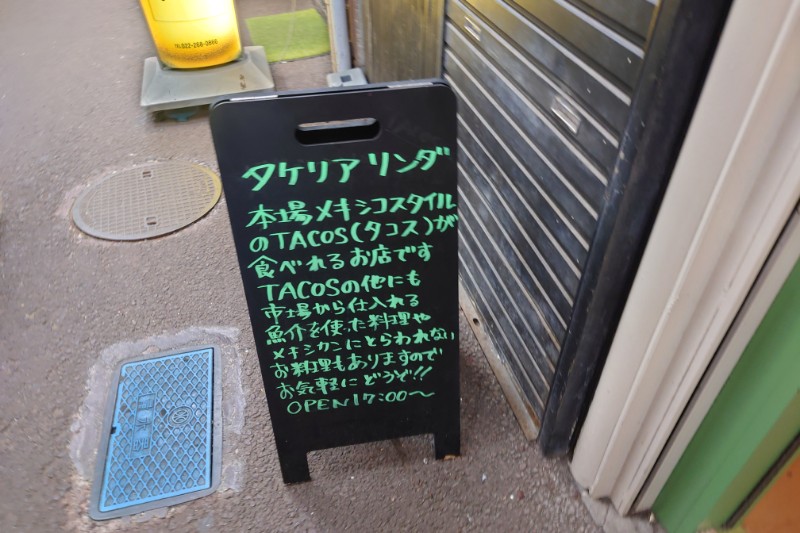 TEL 022-266-3666
タケリア リンダ
本場メキシコスタイル
のTACOS(タコス)が
食べれるお店です
TACOSの他にも
市場から仕入れる
魚介を使った料理や
メキシカンにとらわれない
お料理もありますので
お気軽にどうぞ!!
OPEN17:00〜